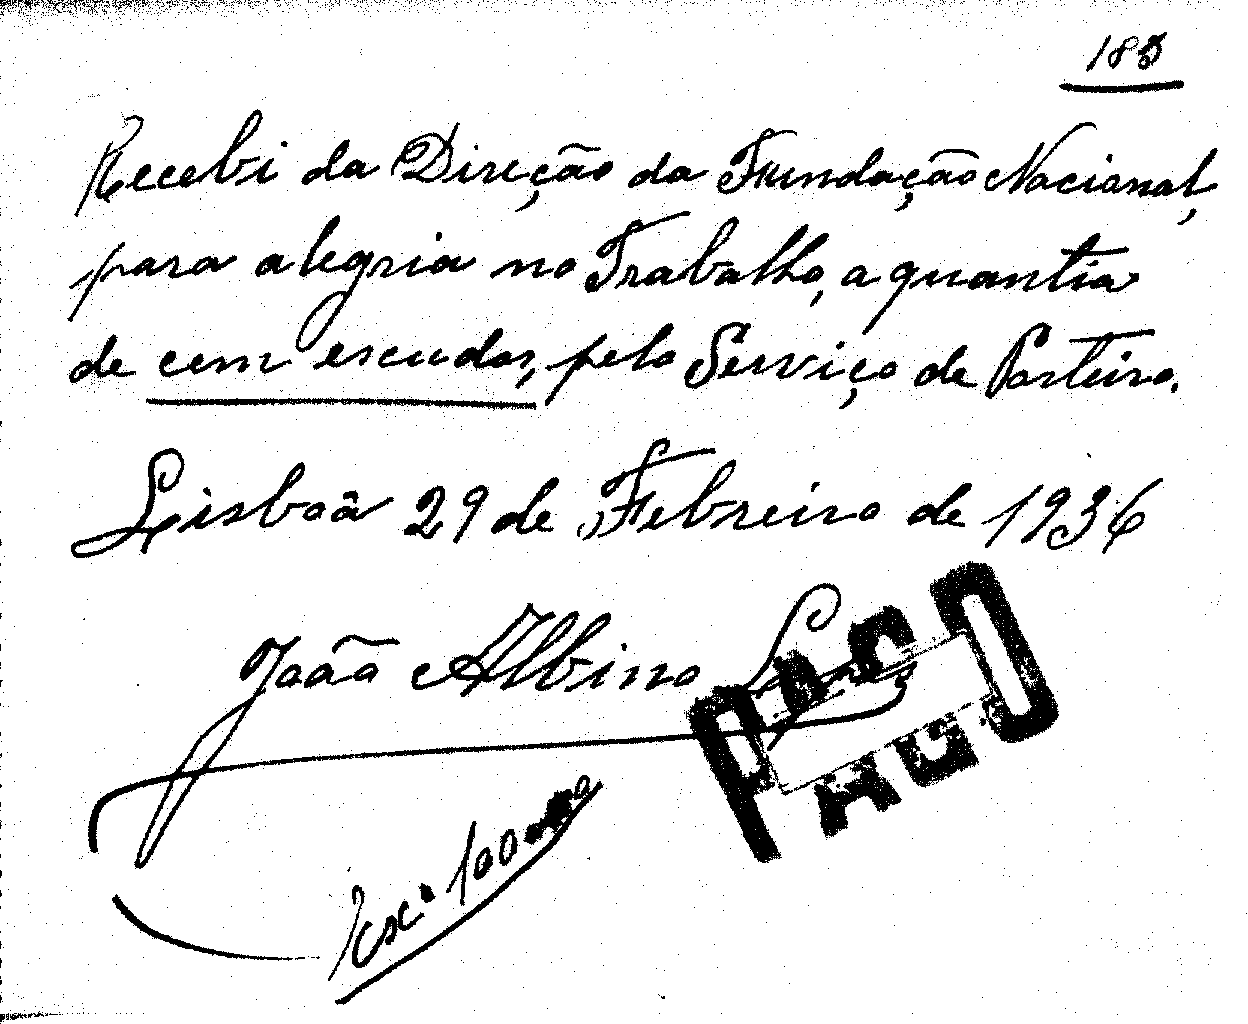 Recebi da Direção da Fundação Nacional,
para alegria no Trabalho, a quantia
de cem escudos, pelo Serviço de Porteiro.
Lisboâ 29 de Febreiro de 1936
João Albino
PAGO
Esc. 100